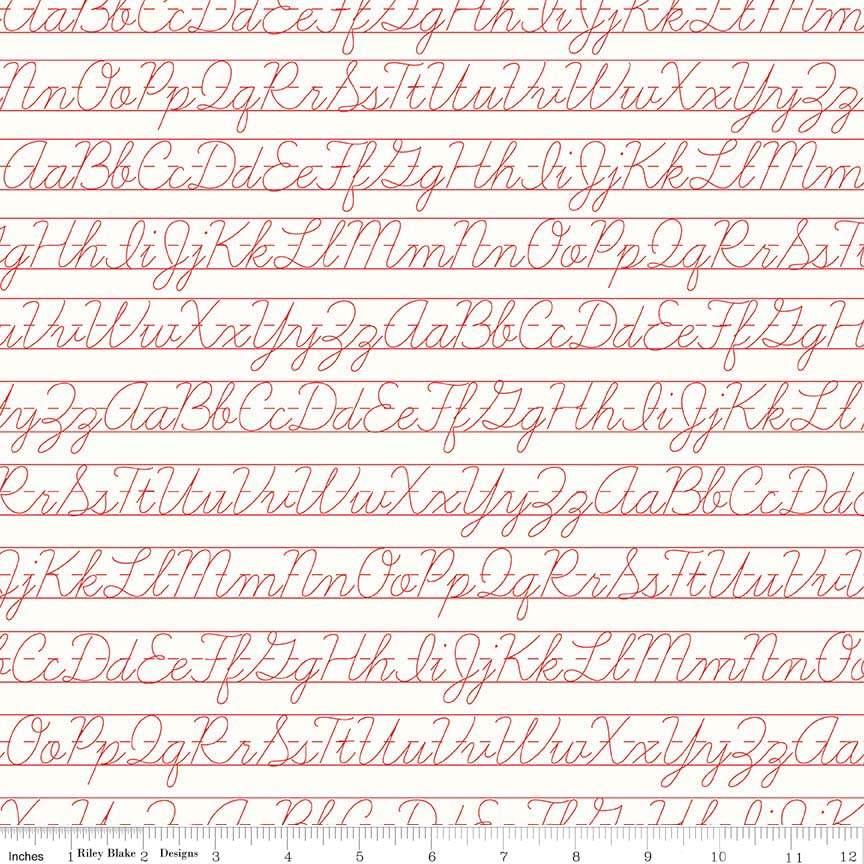 AaBbCcDdEeFfGgHhIiJjKkLlMm
NnOoPpQqRrSsTtUuVvWwXxYyZz
AaBbCcDdEeFfGgHhIiJjKkLlMm
gHhIiJjKkLlMmNnOoPpQqRrSsT
uVvWwXxYyZzAaBbCcDdEeFfGgH
yZzAaBbCcDdEeFfGgHhIiJjKkLl
RrSsTtUuVvWwXxYyZzAaBbCcDd
JjKkLlMmNnOoPpQqRrSsTtUuVv
bCcDdEeFfGgHhIiJjKkLlMmNnOo
OoPpQqRrSsTtUuVvWwXxYyZzAa
Inches 1 Riley Blake 2 Designs 3 4 5 6 7 8 9 10 11 12